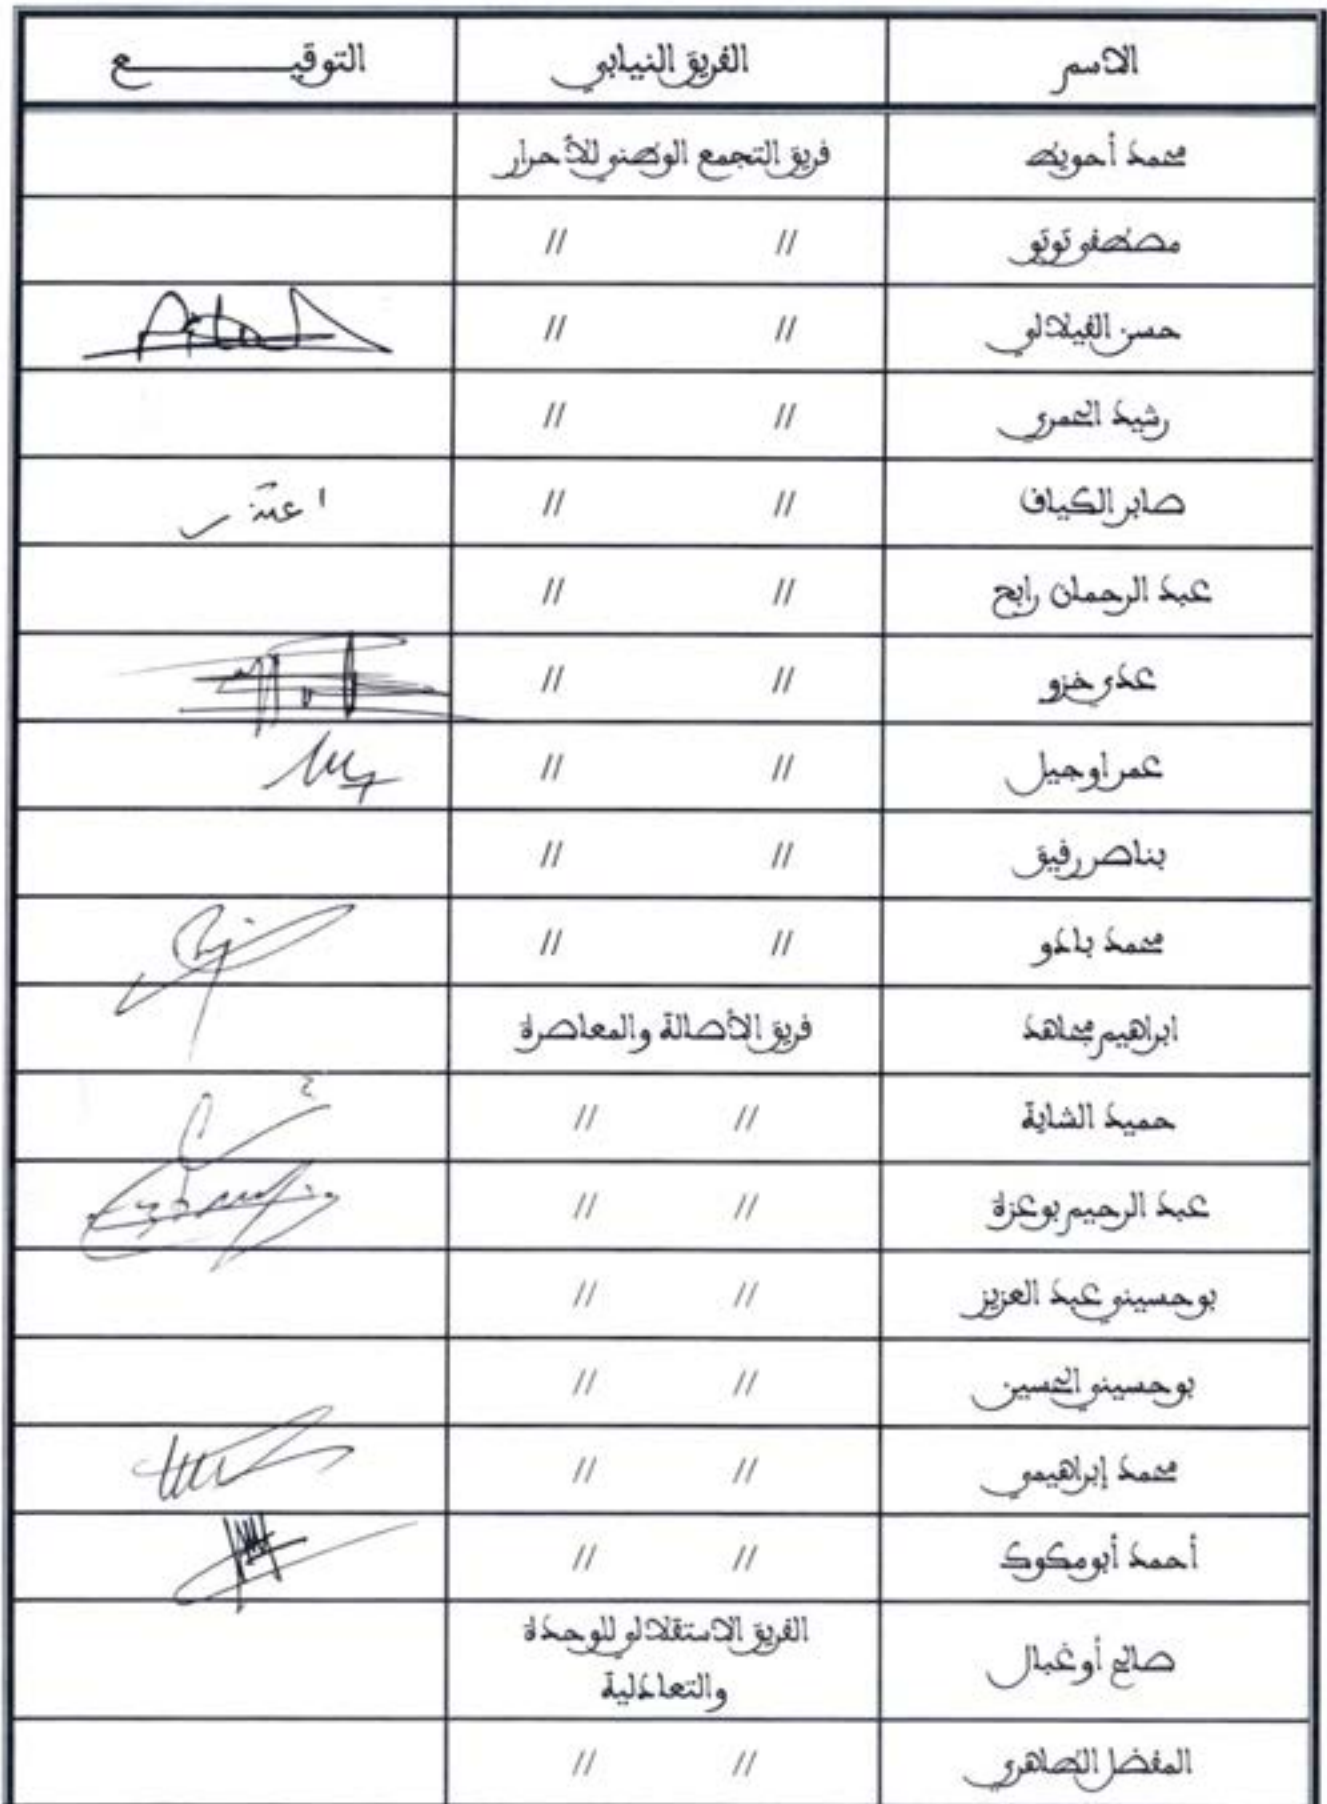 الاسم الفريق النيابي التوقيـــــــع
محمد أحويط فريق التجمع الوطني للأحرار
مصطفى توتو // //
حسن الفيلالي // //
رشيد الحمري // //
صابر الكياف // // اعتذر
عبد الرحمان رابح // //
عدي خزو // //
عمر اوجيل // //
بناصر رفيق // //
محمد بادو // //
ابراهيم مجاهد فريق الأصالة والمعاصرة
حميد الشاية // //
عبد الرحيم بوعزة // //
بوحسيني عبد العزيز // //
بوحسيني الحسين // //
محمد إبراهيمي // //
أحمد أبومكوك // //
صالح أوغبال الفريق الاستقلالي للوحدة
والتعادلية
المفضل الطاهري // //